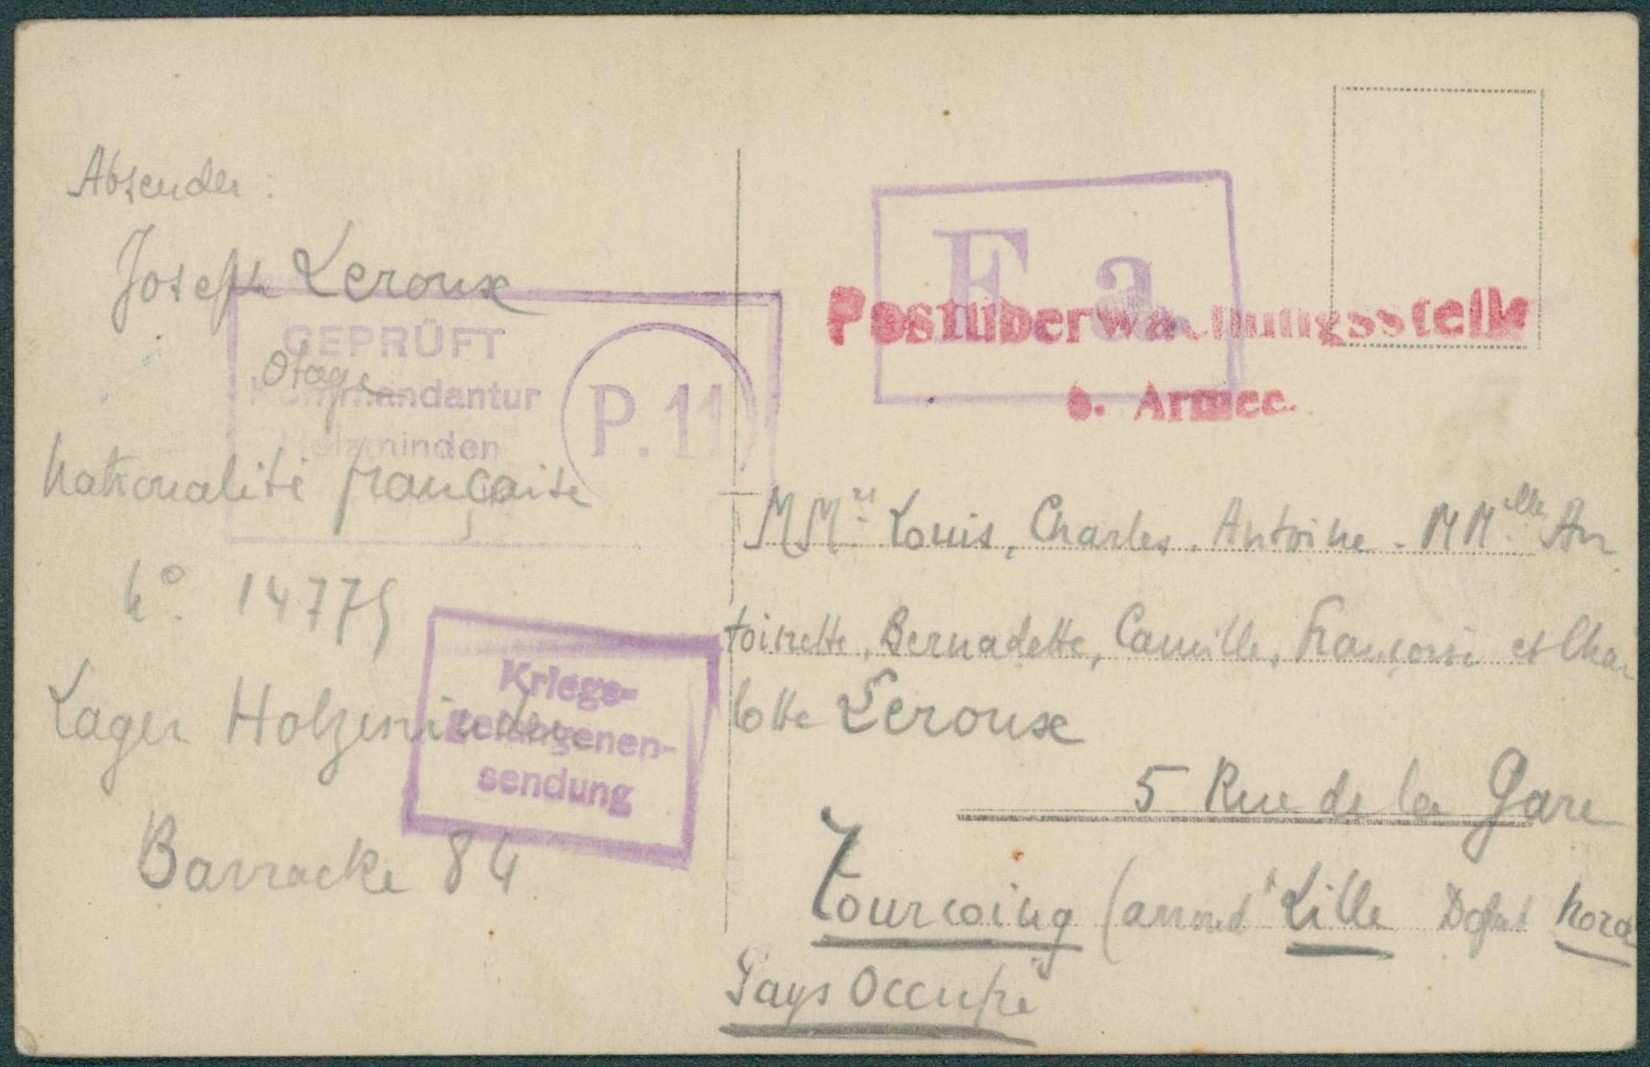 Absender:
Joseph Leroux
Otage
Nationalité française
N° 14779
Lager Holzminden
Barracke 84
GEPRÜFT
Kommandantur
Holzminden
P.11
Kriegs-
gefangenen-
sendung
F a
Postüberwachungsstelle
6. Armee.
MMrs Louis, Charles, Antoine - MMelles An
toinette, Bernadette, Camille, Françoise et Char
lotte Leroux
5 Rue de la Gare
Tourcoing (arrondt Lille Dépt Nord
Pays Occupé